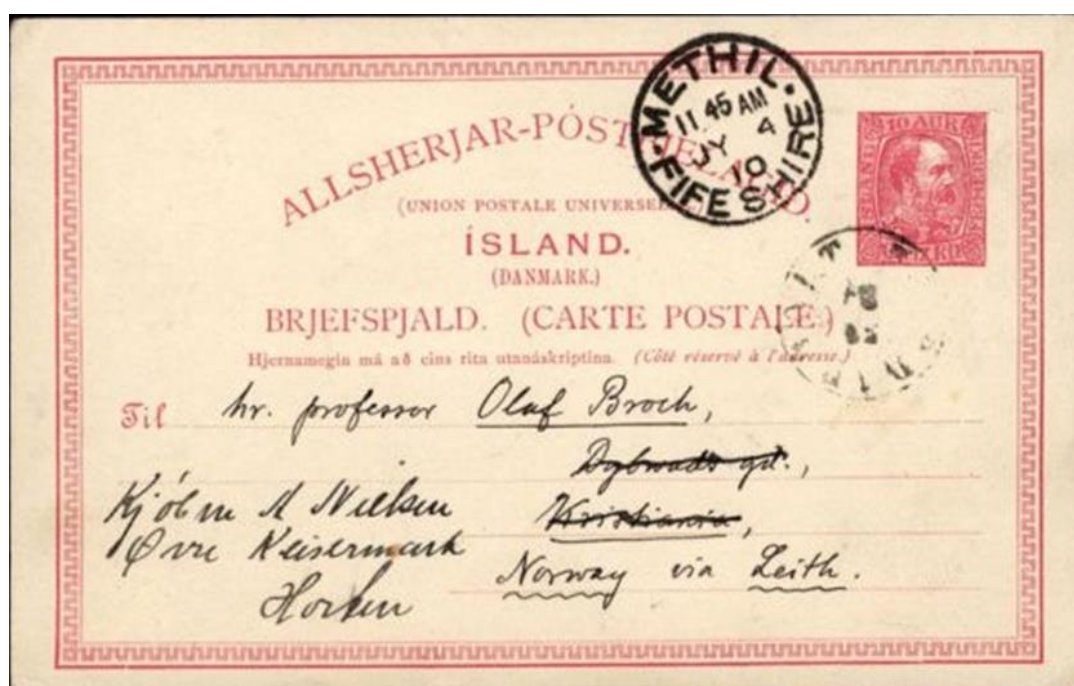 METHIL.
11.45 AM
JY 4
10
FIFESHIRE
10 AUR
ALLSHERJAR-PÓST
(UNION POSTALE UNIVERSELLE)
ÍSLAND.
(DANMARK.)
BRJEFSPJALD. (CARTE POSTALE.)
Hjernamegin má að eins rita utanáskriptina. (Côté réservé à l'adresse.)
Til hr. professor Olaf Broch,
Dybwads gd.,
Kristiania,
Norway via Leith.
Kjöbm M Nielsen
Øvre Keisermark
Horten